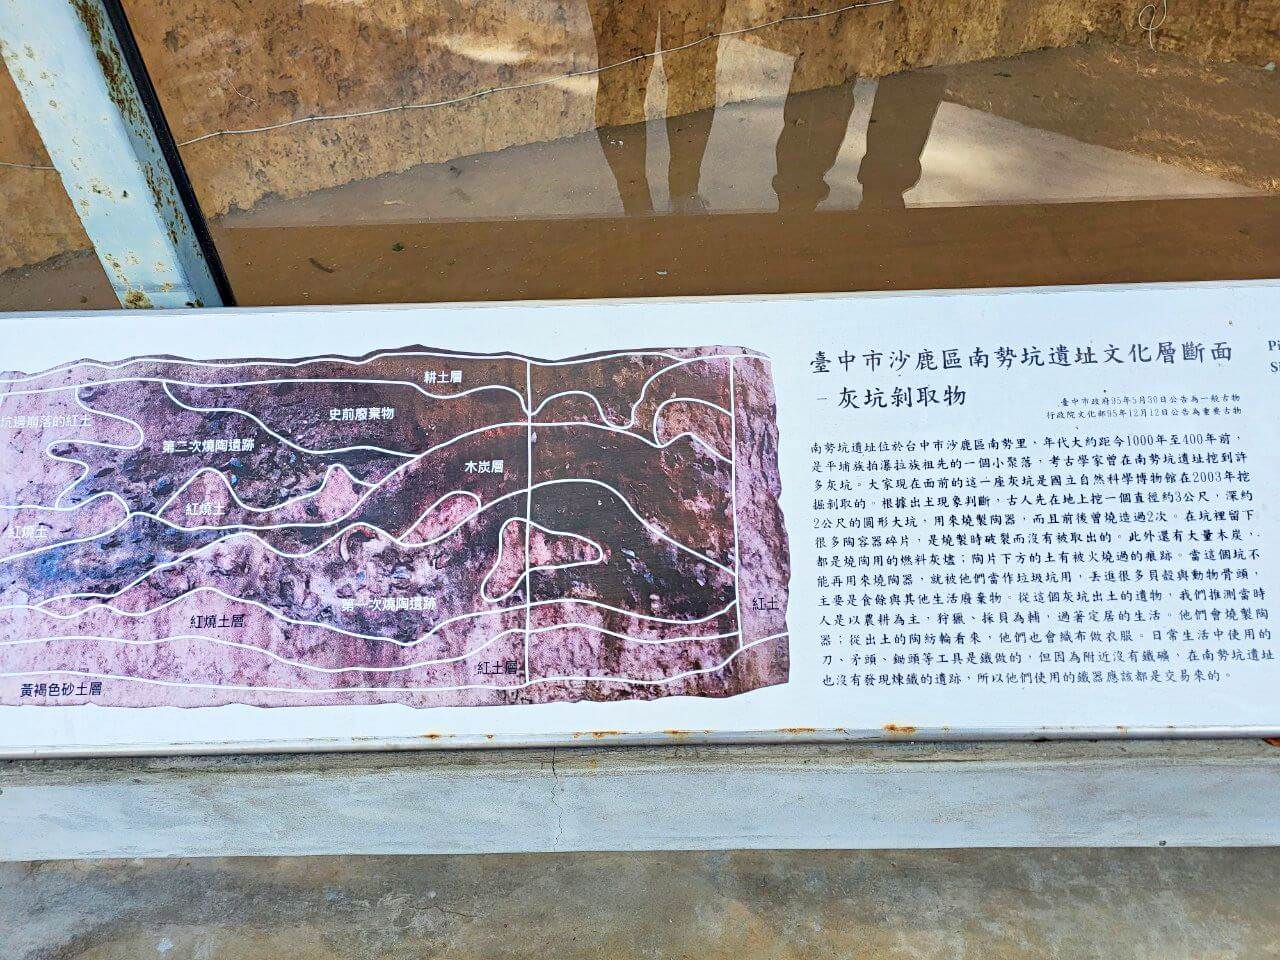 耕土層
史前廢棄物
坑邊崩落的紅土
第二次燒陶遺跡
木炭層
紅燒土
紅燒土
第一次燒陶遺跡
紅土
紅燒土層
紅土層
黃褐色砂土層
臺中市沙鹿區南勢坑遺址文化層斷面
-灰坑剝取物
臺中市政府95年5月30日公告為一般古物
行政院文化部95年12月12日公告為重要古物
南勢坑遺址位於台中市沙鹿區南勢里，年代大約距今1000年至400年前，
是平埔族拍瀑拉族祖先的一個小聚落，考古學家曾在南勢坑遺址挖到許
多灰坑。大家現在面前的這一座灰坑是國立自然科學博物館在2003年挖
掘剝取的。根據出土現象判斷，古人先在地上挖一個直徑約3公尺，深約
2公尺的圓形大坑，用來燒製陶器，而且前後曾燒造過2次。在坑裡留下
很多陶容器碎片，是燒製時破裂而沒有被取出的。此外還有大量木炭，
都是燒陶用的燃料灰燼；陶片下方的土有被火燒過的痕跡。當這個坑不
能再用來燒陶器，就被他們當作垃圾坑用，丟進很多貝殼與動物骨頭，
主要是食餘與其他生活廢棄物。從這個灰坑出土的遺物，我們推測當時
人是以農耕為主，狩獵、採貝為輔，過著定居的生活。他們會燒製陶
器；從出土的陶紡輪看來，他們也會織布做衣服。日常生活中使用的
刀、矛頭、鋤頭等工具是鐵做的，但因為附近沒有鐵礦，在南勢坑遺址
也沒有發現煉鐵的遺跡，所以他們使用的鐵器應該都是交易來的。